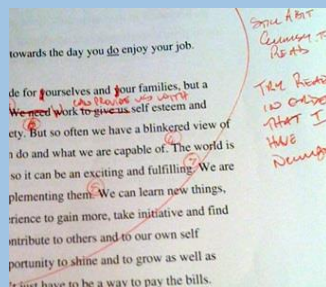 towards the day you do enjoy your job.
de for yourselves and your families, but a
CAN PROVIDE US WITH
We need work to give us self esteem and
ety. But so often we have a blinkered view of
n do and what we are capable of. The world is
so it can be an exciting and fulfilling. We are
plementing them. We can learn new things,
rience to gain more, take initiative and find
ntribute to others and to our own self
portunity to shine and to grow as well as
't just have to be a way to pay the bills.
STILL A BIT
CLUMSY TO
READ
TRY READ
IN ORDER
THAT I
HAVE